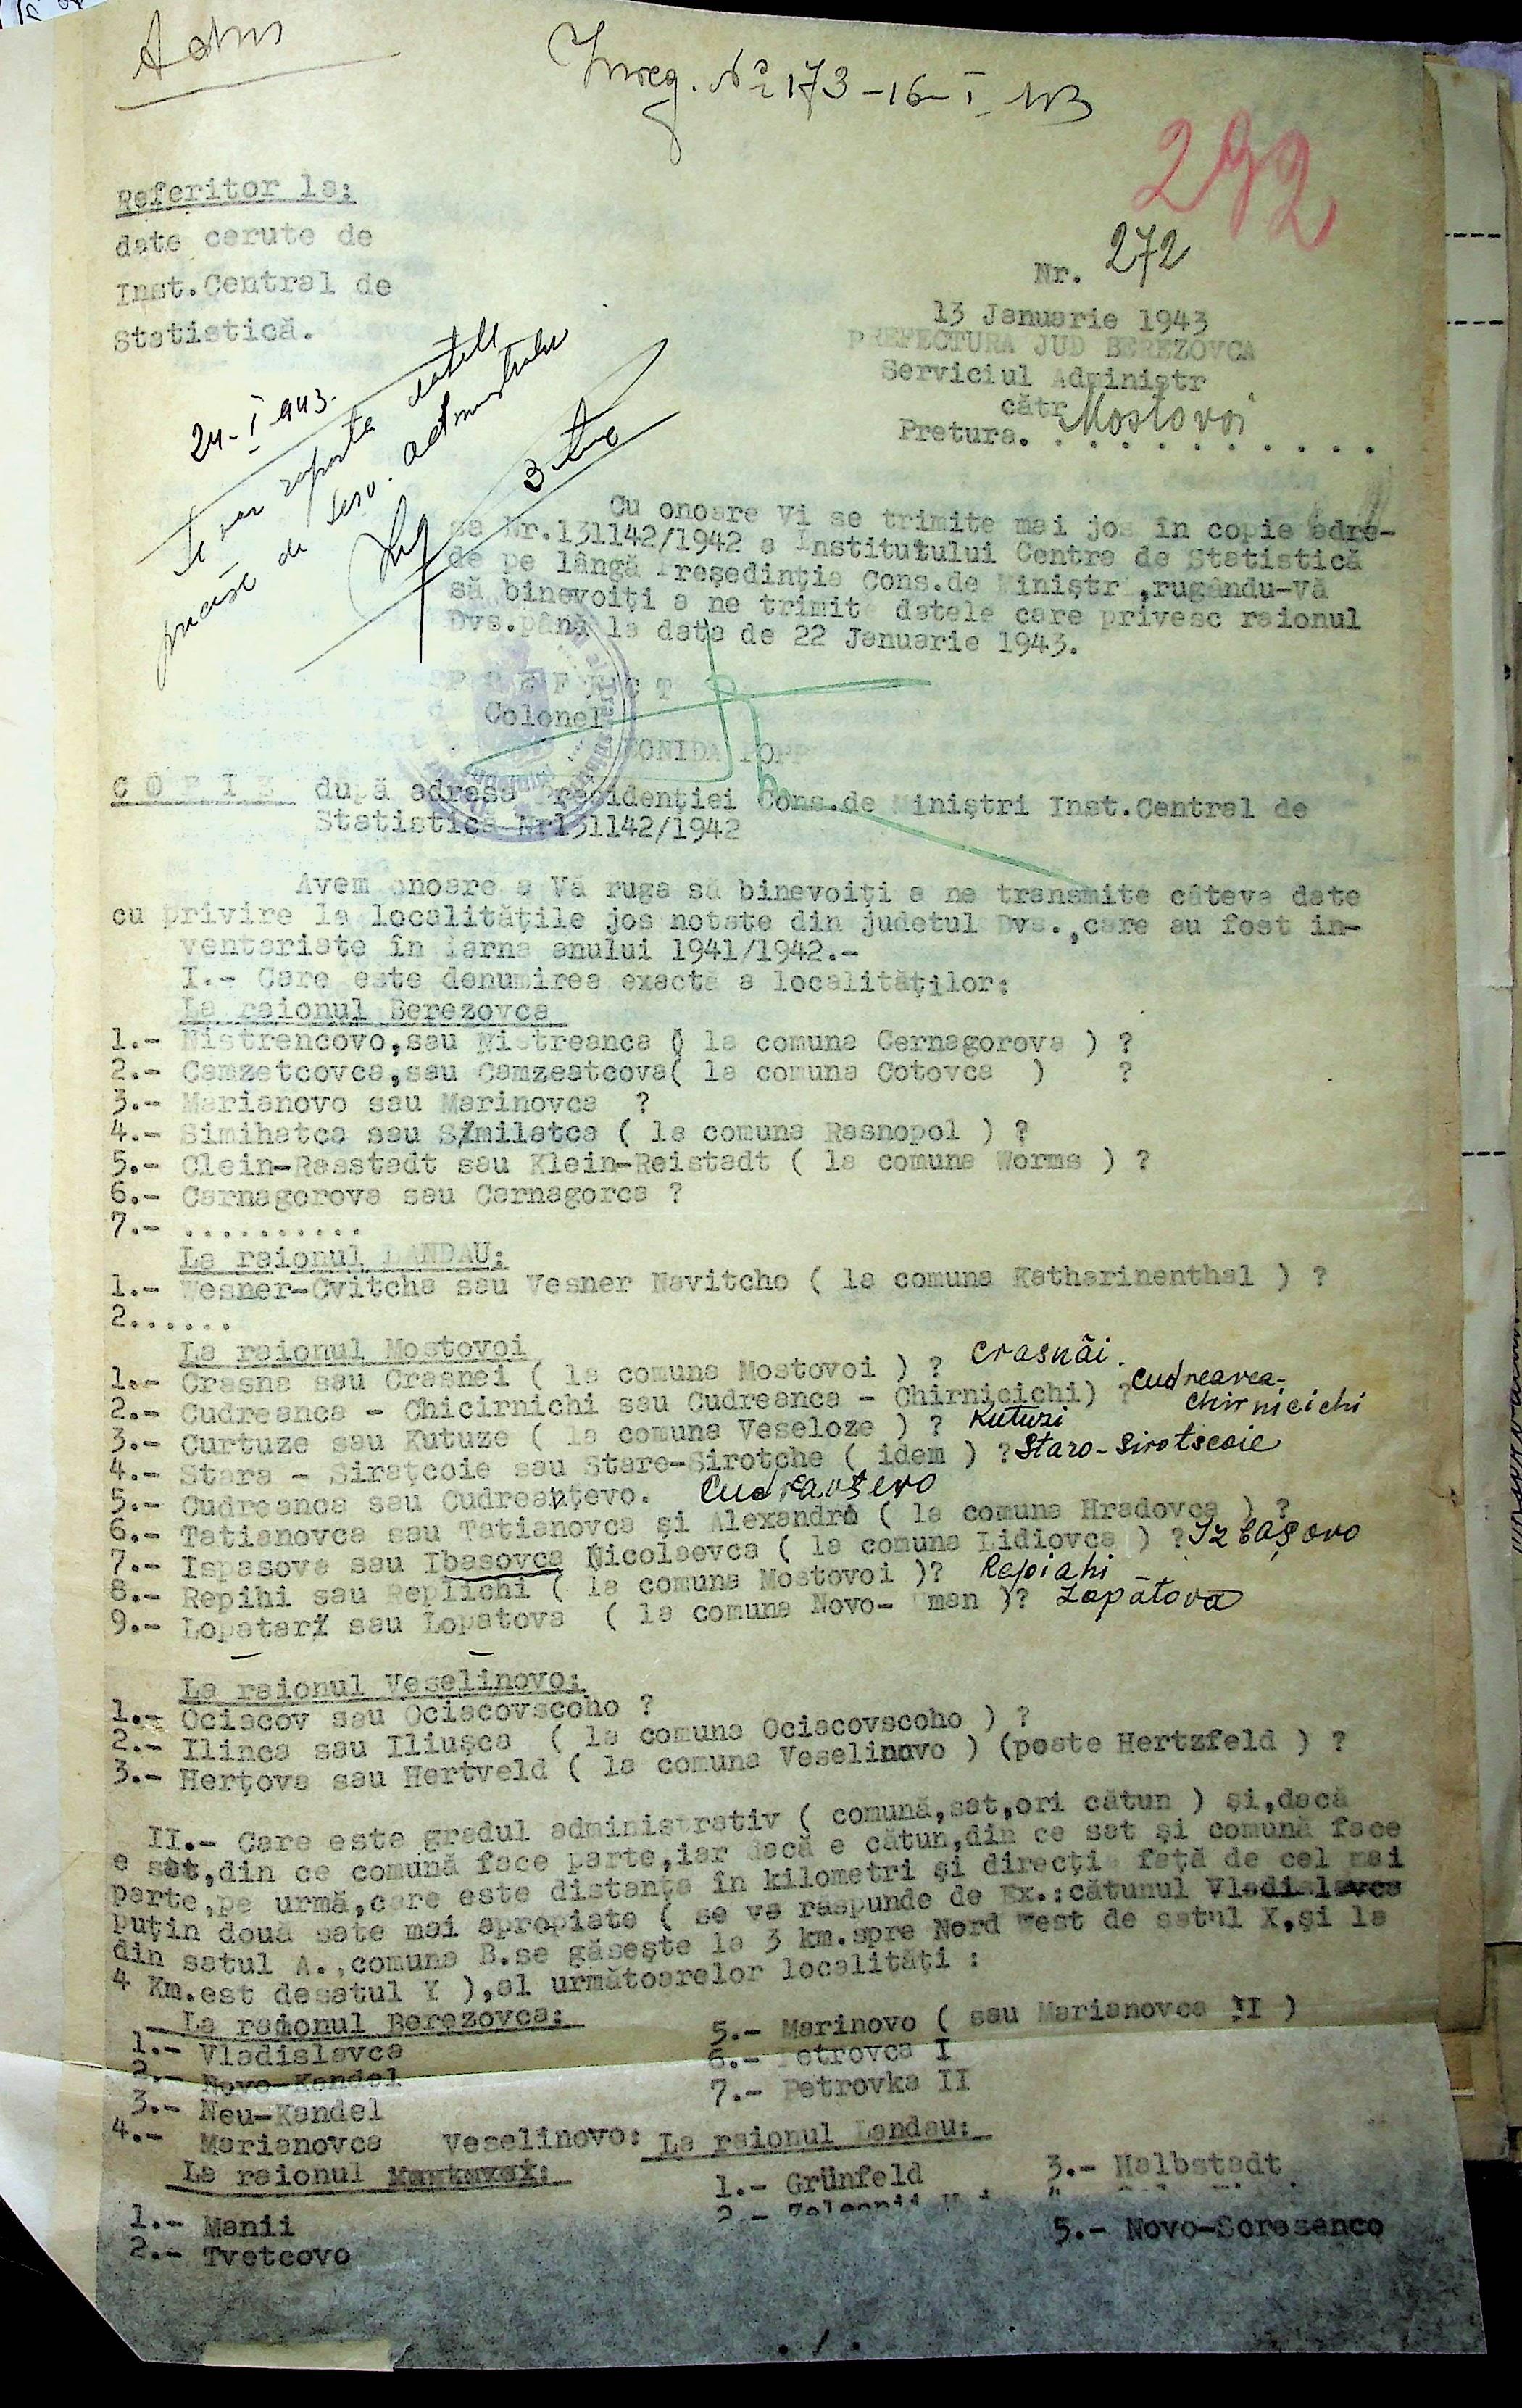 Inreg. № 173-16-I 943
292
Referitor la:
date cerute de
Inst.Central de
Statistică.
Nr. 272
13 Januarie 1943
PREFECTURA JUD BEREZOVCA
Serviciul Administr
cătr
Pretura. Mostovoi . . . . . . . . . .
24-I-943.
Cu onoare Vi se trimite mai jos în copie adre-
sa Nr.131142/1942 a Institutului Centra de Statistică
de pe lângă Preşedinţia Cons.de Miniştr ,rugându-Vă
să binevoiţi a ne trimite datele care privesc raionul
Dvs.până la data de 22 Januarie 1943.
P R E F E C T
Colonel
LEONIDA POPP
C O P I E după adresa Presidenţiei Cons.de Miniştri Inst.Central de
Statistică Nr131142/1942
Avem onoare a Vă ruga să binevoiţi a ne transmite câteva date
cu privire la localităţile jos notate din judetul Dvs.,care au fost in-
ventariate în iarna anului 1941/1942.-
I.- Care este denumirea exactă a localităţilor:
La raionul Berezovca
1.- Nistrencovo,sau Nistreanca ( la comuna Cernagorova ) ?
2.- Camzetcovca,sau Camzeatcova( la comuna Cotovca ) ?
3.- Marianovo sau Marinovca ?
4.- Simihatca sau Similatca ( la comuna Rasnopol ) ?
5.- Clein-Rasstadt sau Klein-Reistadt ( la comuna Worms ) ?
6.- Carnagorova sau Carnagorca ?
7.- ..........
La raionul LANDAU:
1.- Wesner-Cvitcha sau Vesner Navitcho ( la comuna Katharinenthal ) ?
2......
La raionul Mostovoi
1.- Crasna sau Crasnei ( la comuna Mostovoi ) ? Crasnâi.
2.- Cudreanca - Chicirnichi sau Cudreanca - Chirnicichi) ? Cudreavca-
Chirnicichi
3.- Curtuze sau Kutuze ( la comuna Veseloze ) ? Kutuzi
4.- Stara - Siraţcoie sau Stare-Sirotche ( idem ) ? Staro-Sirotscoie
5.- Cudreanca sau Cudreanţevo. Cudravţevo
6.- Tatianovca sau Tatianovca şi Alexandro ( la comuna Hradovca ) ?
7.- Ispasova sau Ibasovca Nicolaevca ( la comuna Lidiovca ) ? Izbaşovo
8.- Repihi sau Replichi ( la comuna Mostovoi )? Repiahi
9.- Lopatari sau Lopatova ( la comuna Novo- Uman )? Lopătova
La raionul Veselinovo:
1.- Ociacov sau Ociacovscoho ?
2.- Ilinca sau Iliuşca ( la comuna Ociacovscoho ) ?
3.- Herţova sau Hertveld ( la comuna Veselinovo ) (poate Hertzfeld ) ?
II.- Care este gradul administrativ ( comună,sat,ori cătun ) şi,dacă
e sat,din ce comună face parte,iar dacă e cătun,din ce sat şi comună face
parte,pe urmă,care este distanţa în kilometri şi direcţia faţă de cel mai
puţin două sate mai apropiate ( se va răspunde de Ex.:cătunul Vladislavca
din satul A.,comuna B.se găseşte la 3 km.spre Nord West de satul X,şi la
4 Km.est desatul Y ),al următoarelor localităţi :
La raionul Berezovca:
1.- Vladislavca
2.- Novo-Kandel
3.- Neu-Kandel
4.- Marianovca
5.- Marinovo ( sau Marianovca II )
6.- Petrovca I
7.- Petrovka II
La raionul Veselinovo:
1.- Manii
2.- Tvetcovo
La raionul Landau:
1.- Grünfeld
3.- Halbstadt
5.- Novo-Soresenco
. / .